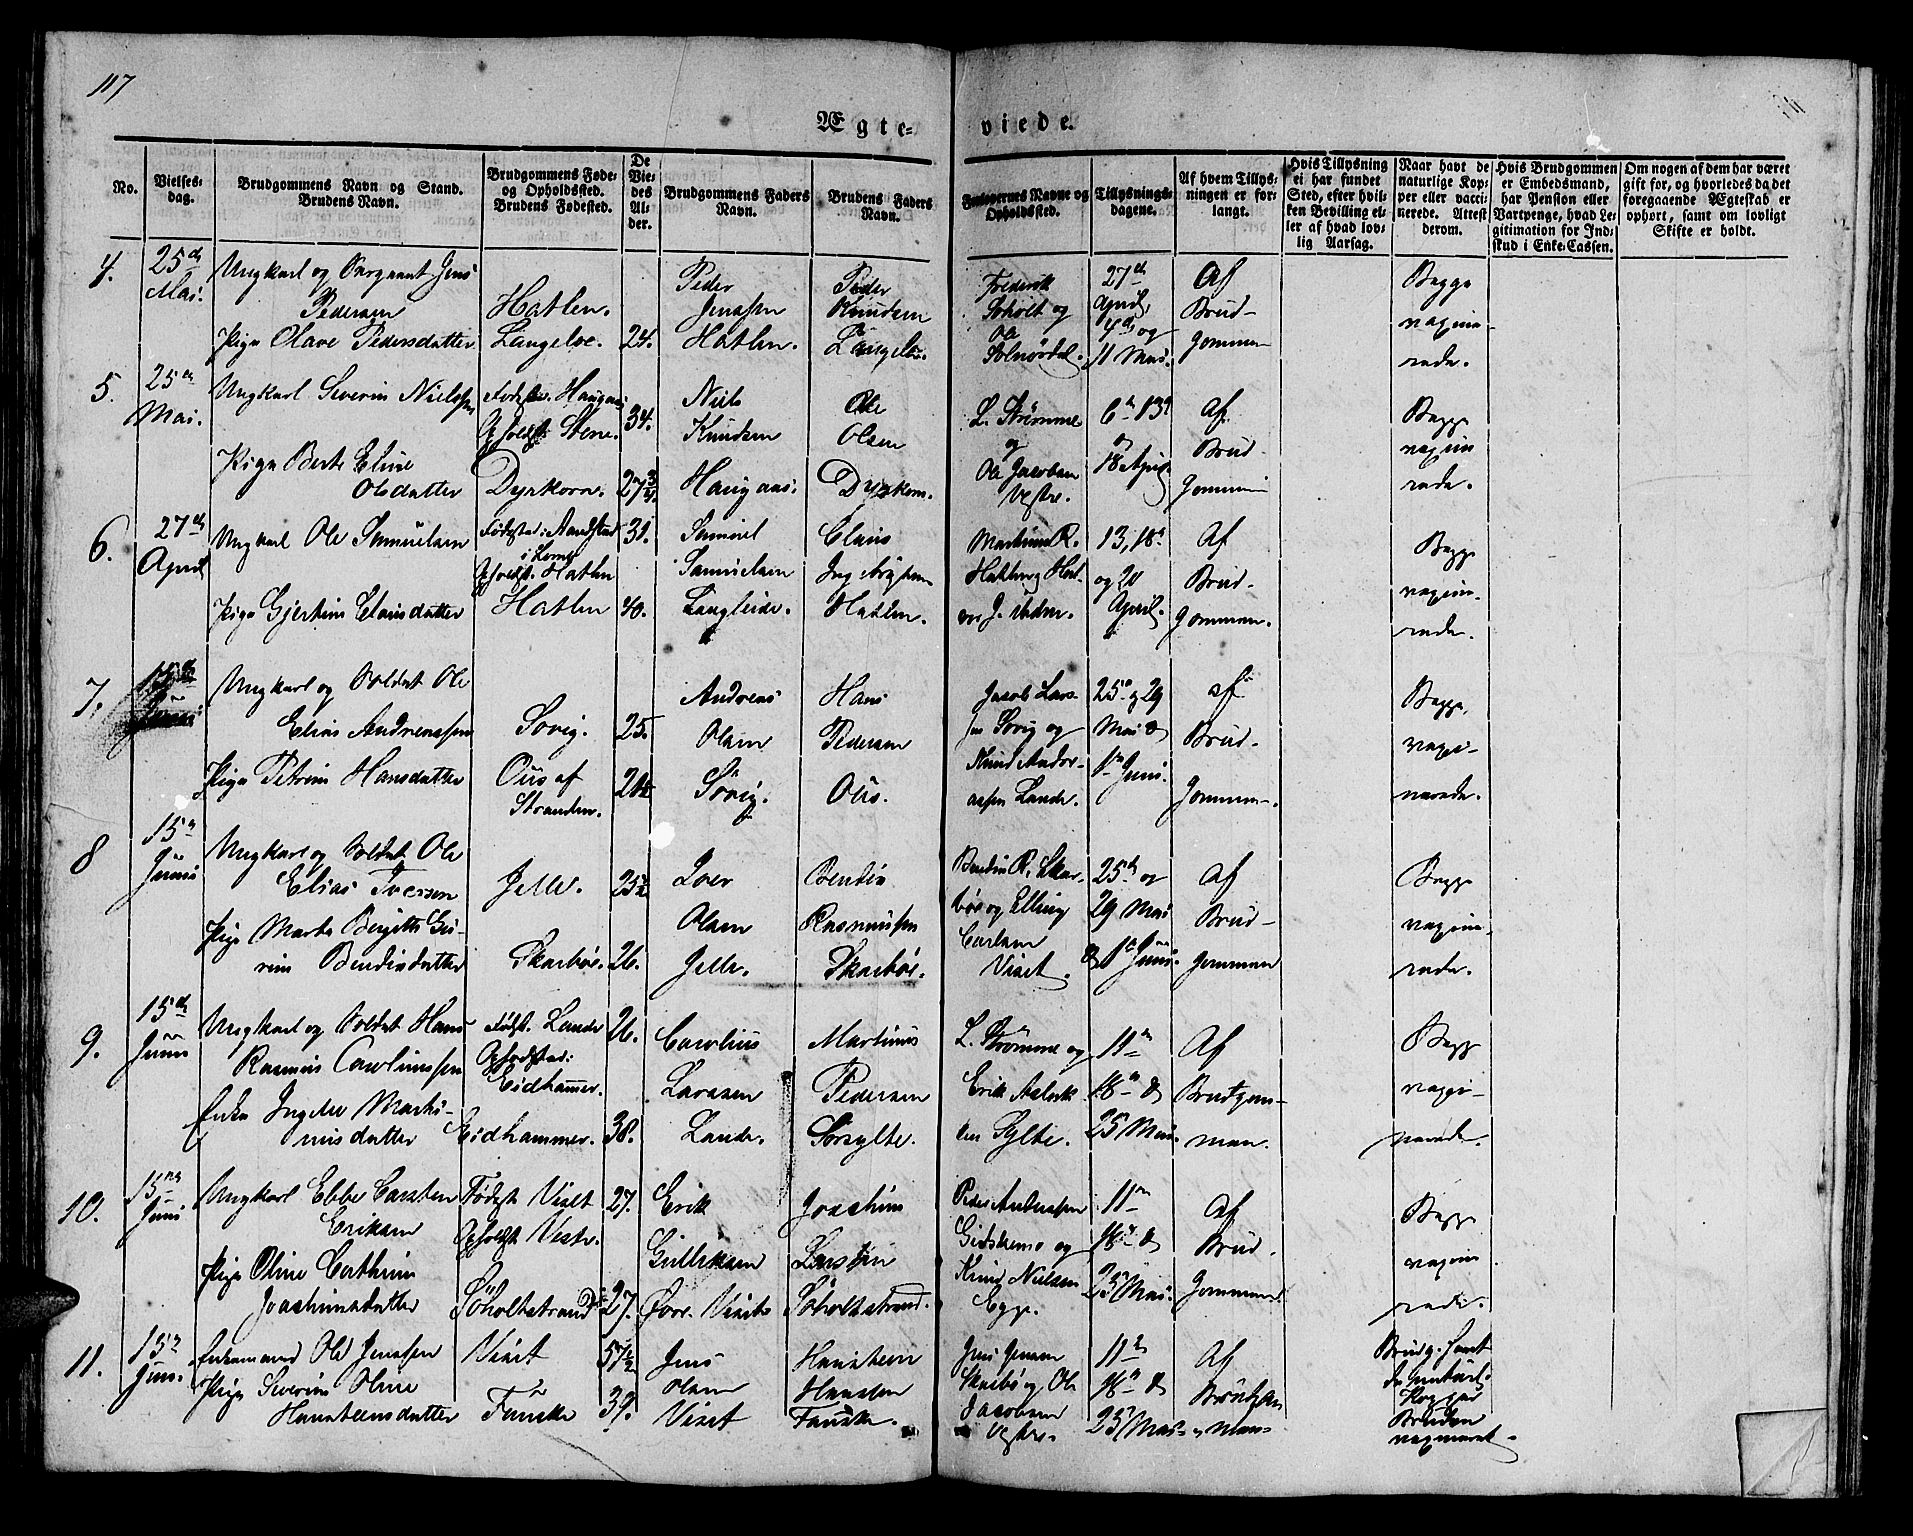 117
Ægte-
viede.
No.
Vielses-
dag.
Brudgommens Navn og Stand.
Brudens Navn.
Brudgommens Føde-
og Opholdssted.
Brudens Fødested.
De
Vie-
des
Al-
der.
Brudgommens Faders
Navn.
Brudens Faders
Navn.
Forlovernes Navne og
Opholdssted.
Tillysnings-
dagene.
Af hvem Tillys-
ningen er for-
langt.
Hvis Tillysning
ei har fundet
Sted, efter hvil-
ken Bevilling el-
ler af hvad lov-
lig Aarsag.
Naar havt de
naturlige Kop-
per eller vacci-
nerede. Attest
derom.
Hvis Brudgommen
er Embedsmand,
har Pension eller
Vartpenge, hvad Le-
gitimation for Ind-
skud i Enke-Cassen.
Om nogen af dem har været
gift før, og hvorledes da det
foregaaende Ægteskab er
ophørt, samt om lovligt
Skifte er holdt.
4.
25de
Mai.
Ungkarl og Sergeant Jens
Pedersen
Pige Olave Pedersdatter
Hatlen.
Langeloe.
24.
Peder
Jenssen
Hatlen.
Peder
Knudsen
Frederik
Soholt og
Ole
Solnørdal.
27de
April,
4de og
11 Mai.
Af
Brud-
gommen
Begge
vaxine-
rede.
5.
25de
Mai.
Ungkarl Severin Nielssen
Pige Berte Eline
Olsdatter
Fødest. Haugaas
Opholdst. Stene.
Dyrkorn.
34.
27 3/4.
Niels
Knudsen
Haugaas.
Ole
Olsen
Dyrkorn.
L. Strømme
og
Ole Jacobsen
Vestre.
6te 13de
og
18 April
Af
Brud-
gommen
Begge
vaxine
rede.
6.
27de
April
Ungkarl Ole Samuelsen
Pige Gjertine Clausdatter
Opholdst. Hatlen
Hatlen
31.
40.
Samuel
Samuelsen
Langleide.
Claus
Hatlen.
Martinus R.
13, 18de
og 20
April.
Af
Brud-
gommen.
Begge
vaxine-
rede.
7.
Ungkarl og Soldat Ole
Elias Andreassen
Pige Petrine Hansdatter
Sovig.
Ous af
Stranden.
25.
Andreas
Olsen
Søvig.
Hans
Pedersen
Ous.
Jacob Lars-
sen Sovig og
Knud Andre-
assen Lande.
25de og 29
Mai &
1ste Juni.
af
Brud-
gommen.
Begge
vaxi-
nerede.
8
15de
Juni
Ungkarl og Soldat Ole
Elias Iversen
Pige Marte Birgitte Gu-
rine Bendixdatter
Jelle.
Skarbøe.
25 1/2
26.
Iver
Olsen
Jelle.
Bendix
Rasmussen
Skarbøe.
Bendix R. Skar-
bøe og Elling
Carlsen
Viset.
25de og
29 Mai
& 1ste Juni.
Af
Brud-
gommen
Begge
vaxine-
rede.
9.
15de
Juni
Ungkarl og Soldat Hans
Rasmus Carolinussen
Enke Ingeler Marti-
nusdatter
Fødst. Lande
Opholdsted:
Eidhammer.
Eidhammer.
26.
38.
Carolius
Larssen
Lande.
Martinus
Pedersen
Sørsylte.
L. Strømme og
Erik Aslak-
sen Sylte.
11te
18de &
25 Mai.
Af
Brudgom-
men.
Begge
vaxi-
nerede.
10.
15de
Juni
Ungkarl Ebbe Carsten
Eriksen
Pige Oline Cathrine
Joachimsdatter
Fødst Viset
Opholdst Vestre.
Søholtstrand
27.
27.
Erik
Gulliksen
Øvre Viset
Joachim
Larssen
Søholtstrand.
Peder Anderssen
Gidskemo og
Knud Nielsen
Egge.
11te
18de &
25 Mai.
Af
Brud-
gommen
Begge
vaxine
rede.
11.
15de
Juni.
Enkemand Ole Jenssen
Pige Severine Oline
Hansteensdatter
Viset
Fauske
57 1/2
39.
Jens
Olsen
Viset
Hansteen
Hanssen
Fauske.
Jens Jensen
Skarbø og Ole
Jacobsen
Vestre.
11te
18de &
25 Mai
Af
Brudgom-
men
Brudg. havt
de naturl.
Kopper
Bruden
vaxineret.